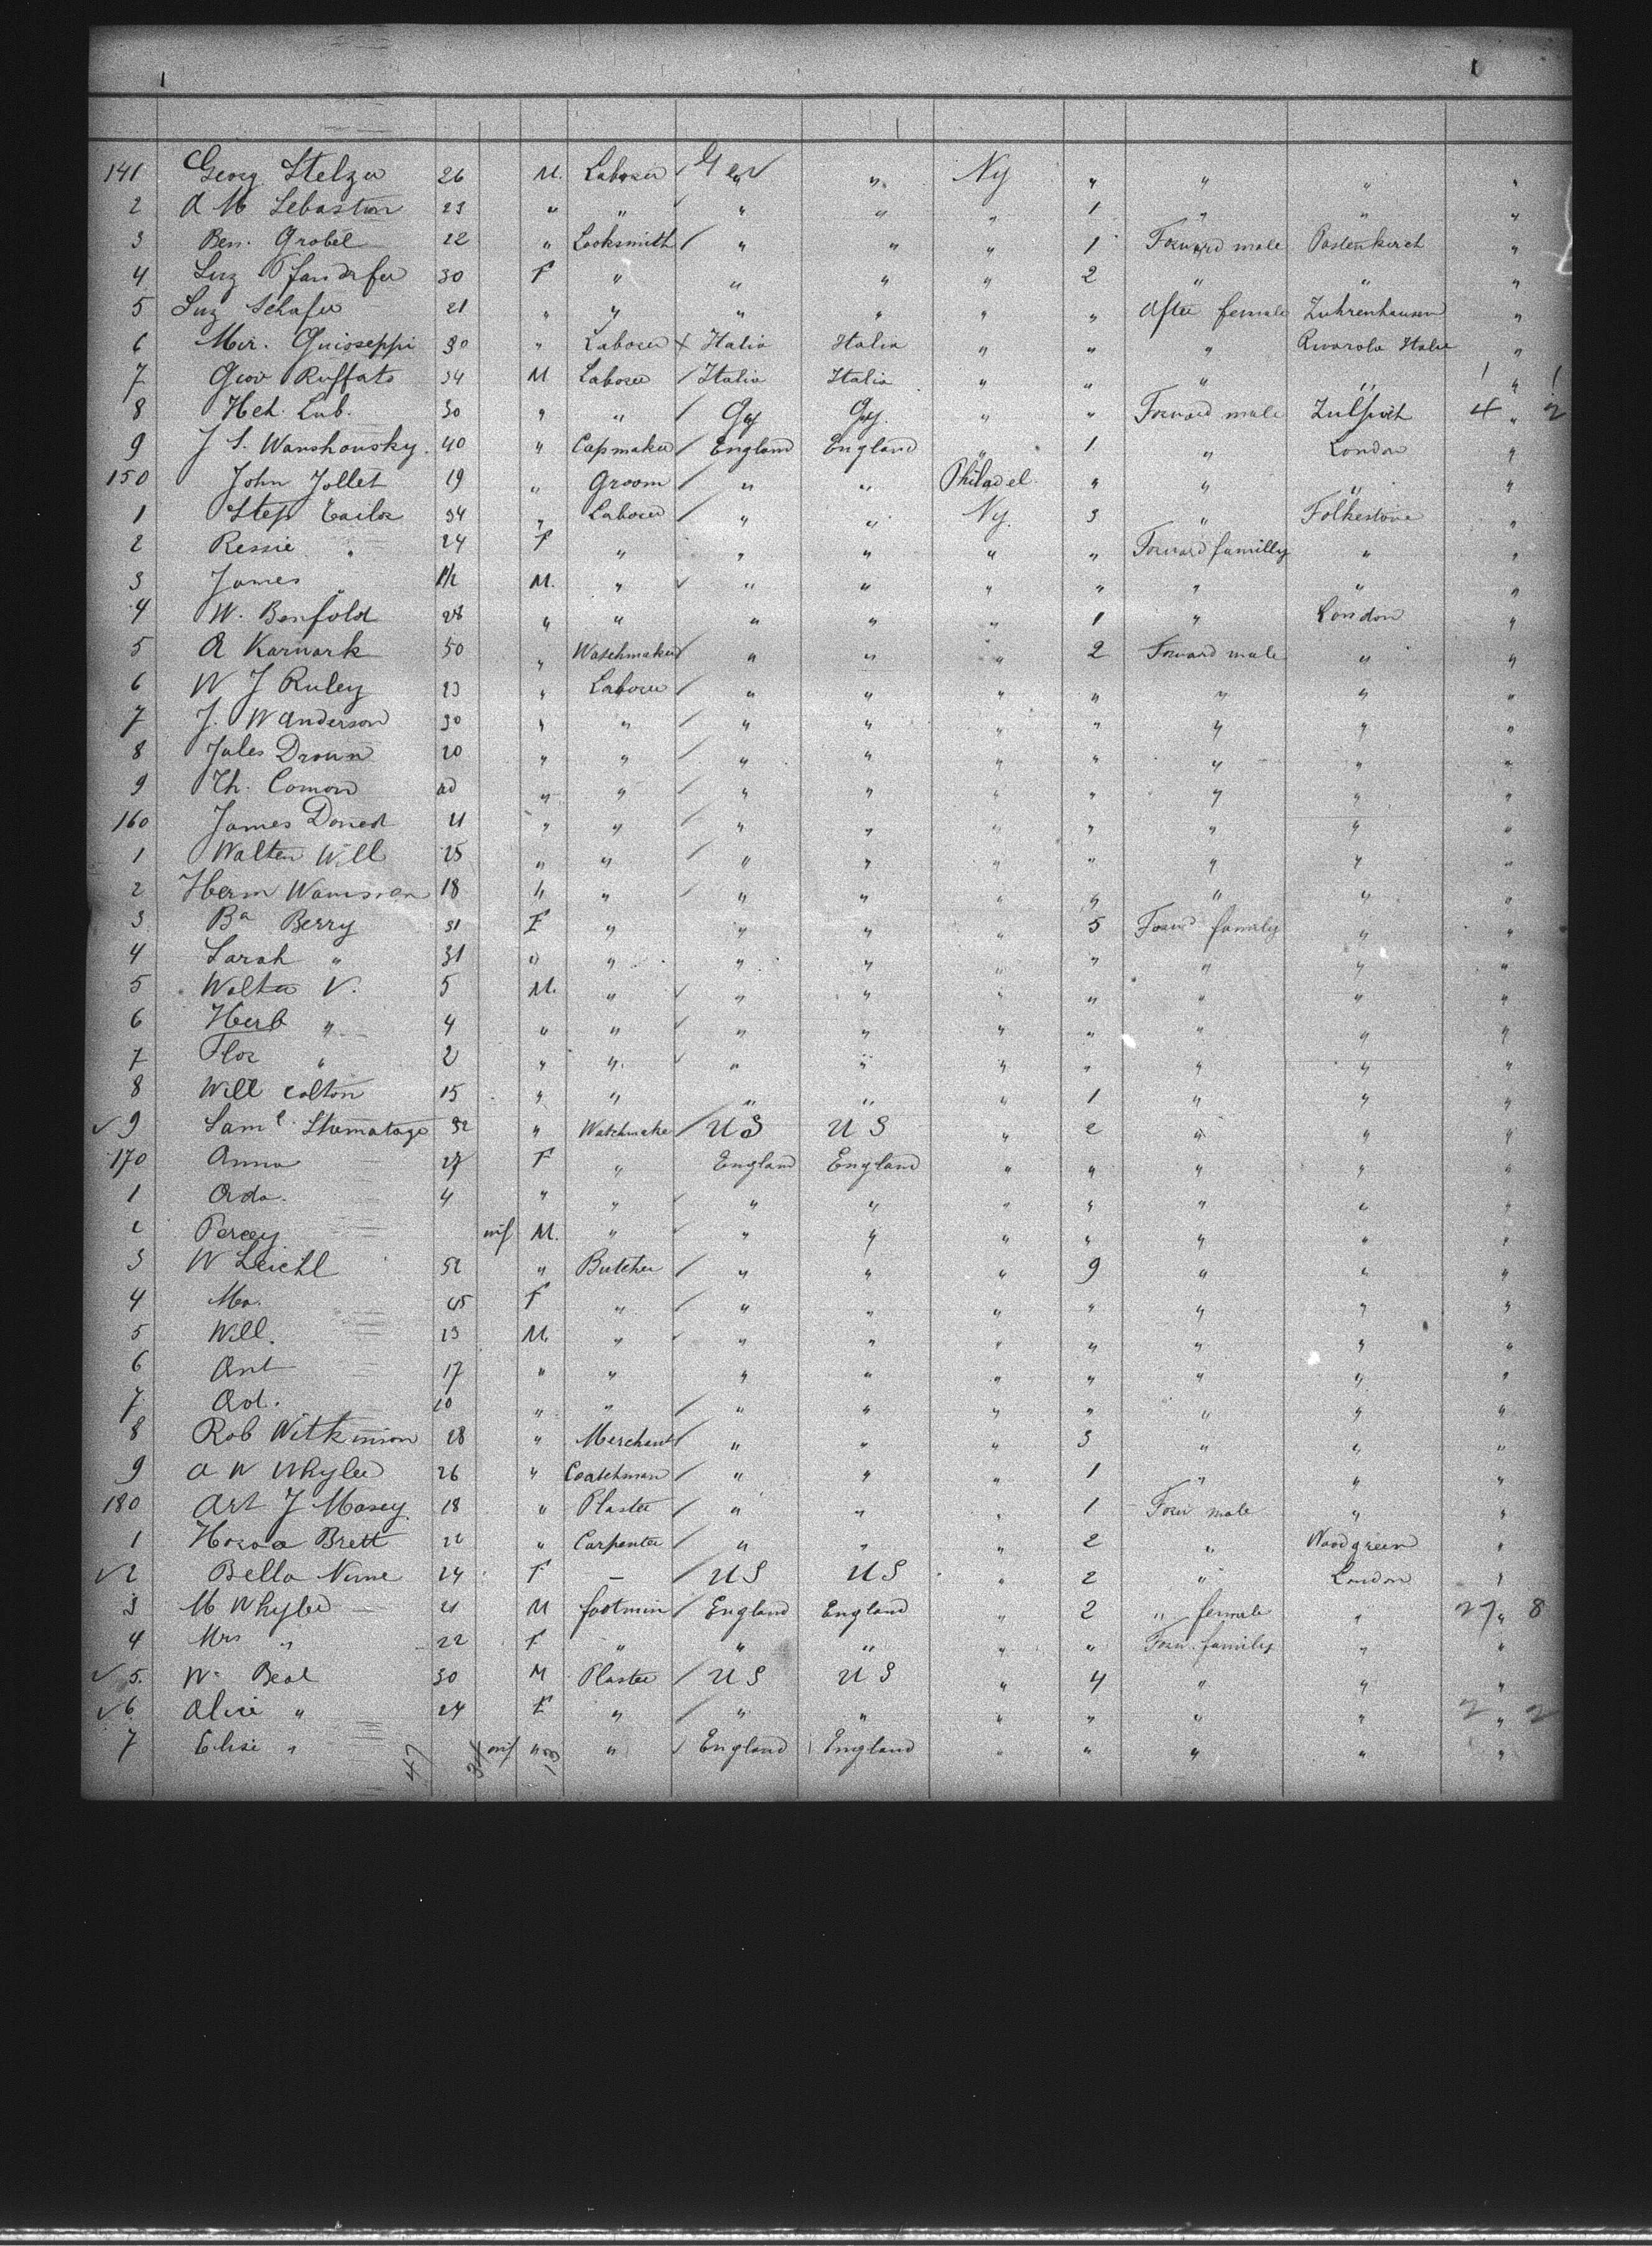 141 Georg Stelzer 26 M. Laborer Ger " Ny " " " "
2 A M Sebastian 23 " " " " " 1 " " "
3 Ben. Grobel 22 " Locksmith " " " 1 Forward male Postenkirch "
4 30 F " " " " 2 " " "
5 Luz Schafer 21 " " " " " " After female Zuhrenhausen "
6 Mir. Guiseppi 30 " Laborer Italia Italia " " " Rivarola Italie "
7 Giov Ruffato 34 M Laborer Italia Italia " " " " 1 " 1
8 Hch. Lub. 30 " " Gy Gy. " " Forward male 4 " 2
9 J S. Warshousky. 40 " Capmaker England England " 1 " London "
150 John Jollet 19 " Groom " " Philadel. " " " "
1 Step Tailor 34 " Laborer " " Ny. 3 " Folkestone "
2 Ressie " 24 F " " " " " Forward familly " "
3 James " M. " " " " " " " "
4 W. Benfold 28 " " " " " 1 " London "
5 A Karnark 50 " Watchmaker " " " 2 Forward male " "
6 W J Ruley 23 " Laborer " " " " " " "
7 J. W Anderson 30 " " " " " " " " "
8 Jules Droun 20 " " " " " " " " "
9 Th. Comon " " " " " " " " "
160 James Doned 21 " " " " " " " " "
1 Walter Will 25 " " " " " " " " "
2 Herm 18 " " " " " " " " "
3 Ba Berry 31 F " " " " 5 Forw family " "
4 Sarah " 31 " " " " " " " " "
5 Walter V. 5 M. " " " " " " " "
6 Herb " 4 " " " " " " " " "
7 Flor " 2 " " " " " " " " "
8 Will Colton 15 " " " " " 1 " " "
9 Saml Stumatage 32 " Watchmake U S U S " 2 " " "
170 Anna 27 F " England England " " " " "
1 Ada. 4 " " " " " " " " "
2 Percy inf M. " " " " " " " "
3 W Leichl 52 " Butcher " " " 9 " " "
4 Ma. 45 F " " " " " " " "
5 Will. 23 M. " " " " " " " "
6 Ant 17 " " " " " " " " "
7 Ad. 20 " " " " " " " " "
8 Rob Witkinson 28 " Merchant " " " 3 " " "
9 A W Whyler 26 " Coatchman " " " 1 " " "
180 Art J Mosey 18 " Plaster " " " 1 Forw male " "
1 Brett 22 " Carpenter " " " 2 " Woodgreen "
2 Bella Nime 24 F – U S U S " 2 " London "
3 M Whyler 21 M footmin England England " 2 " female " 27 " 8
4 Mrs " 22 F " " " " " Forw. family " "
5. W. Beal 30 M Plaster U S U S " 4 " " "
6 Alice " 24 F " " " " " " " 2 " 2
7 Elise " inf " " England England " " " " "
47